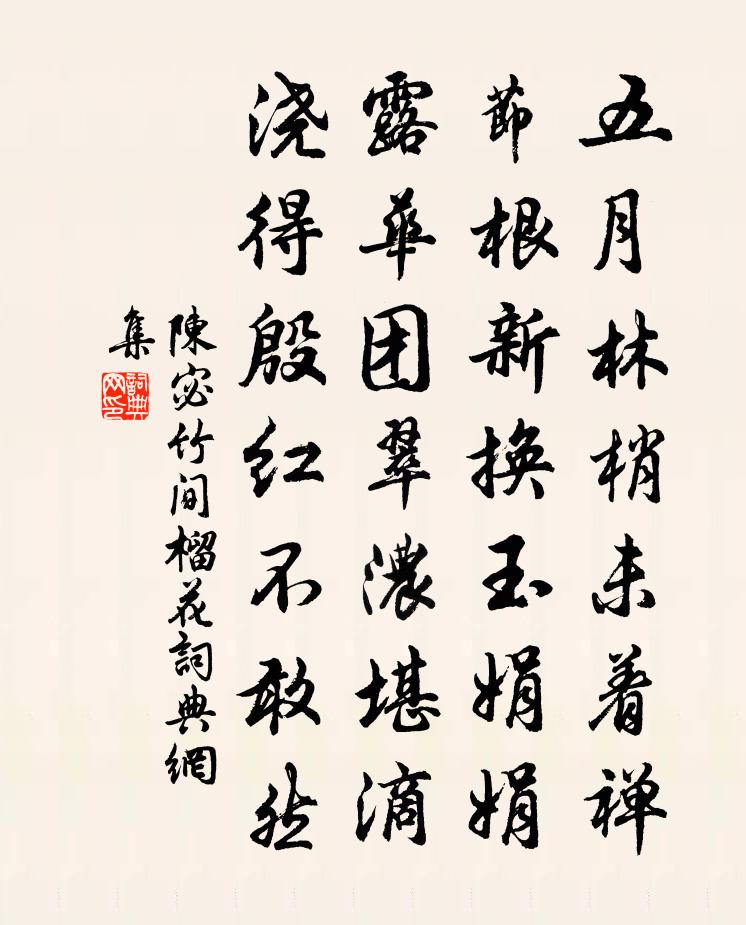 五月林梢未着禅
节根新换玉娟娟
露华团翠浓堪滴
浇得殷红不敢然
陳宓竹间榴花詞典網
集
詞典网印